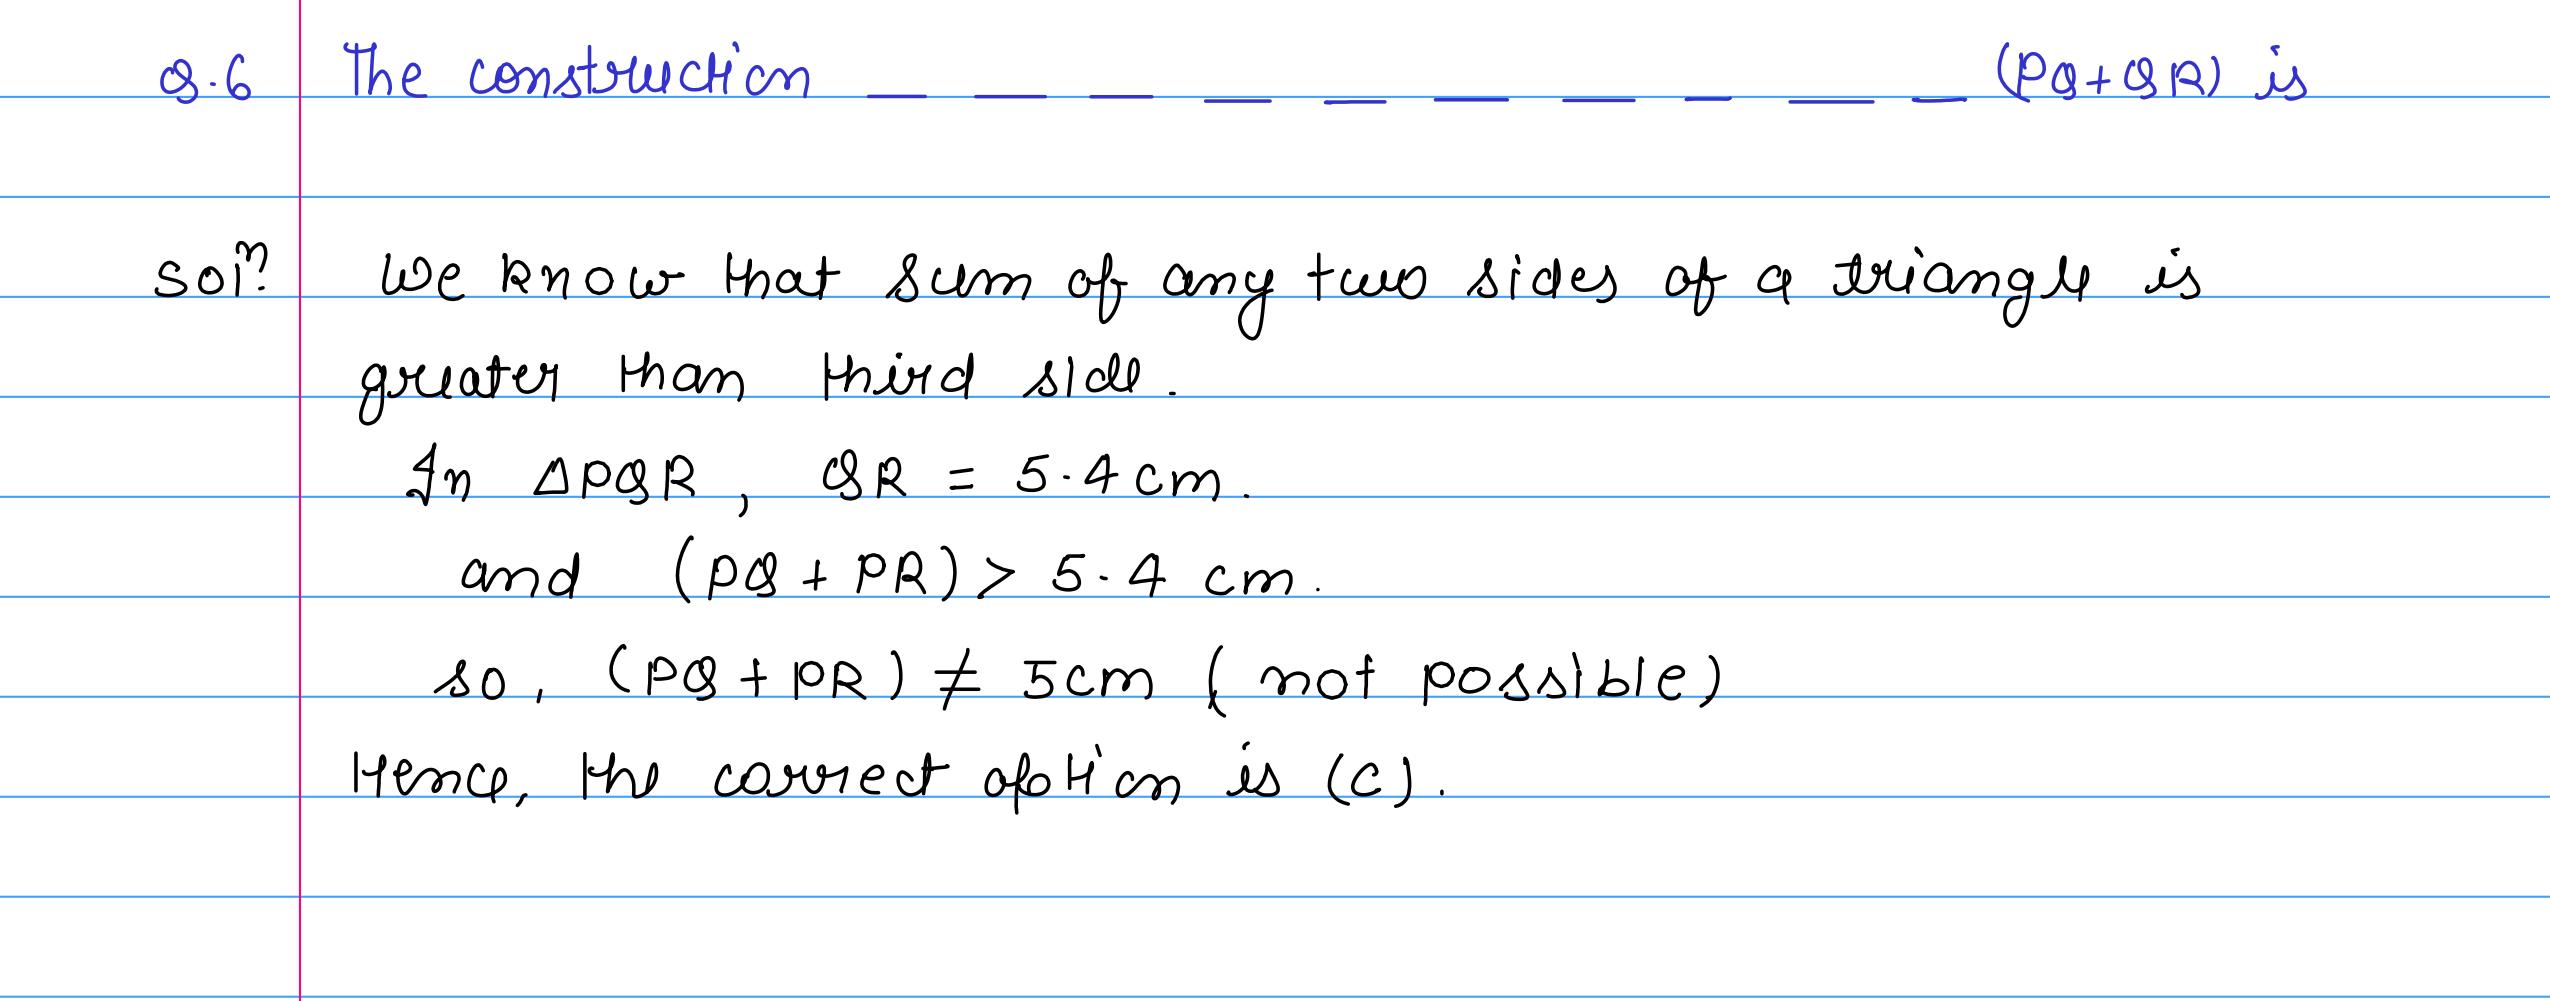 Q.6 The construction _ _ _ _ _ _ _ _ _ _ (PQ+QR) is
Solⁿ: We know that sum of any two sides of a triangle is
greater than third side.
In ΔPQR, QR = 5.4 cm.
and (PQ + PR) > 5.4 cm.
so, (PQ + PR) ≠ 5cm ( not possible)
Hence, the correct option is (C).